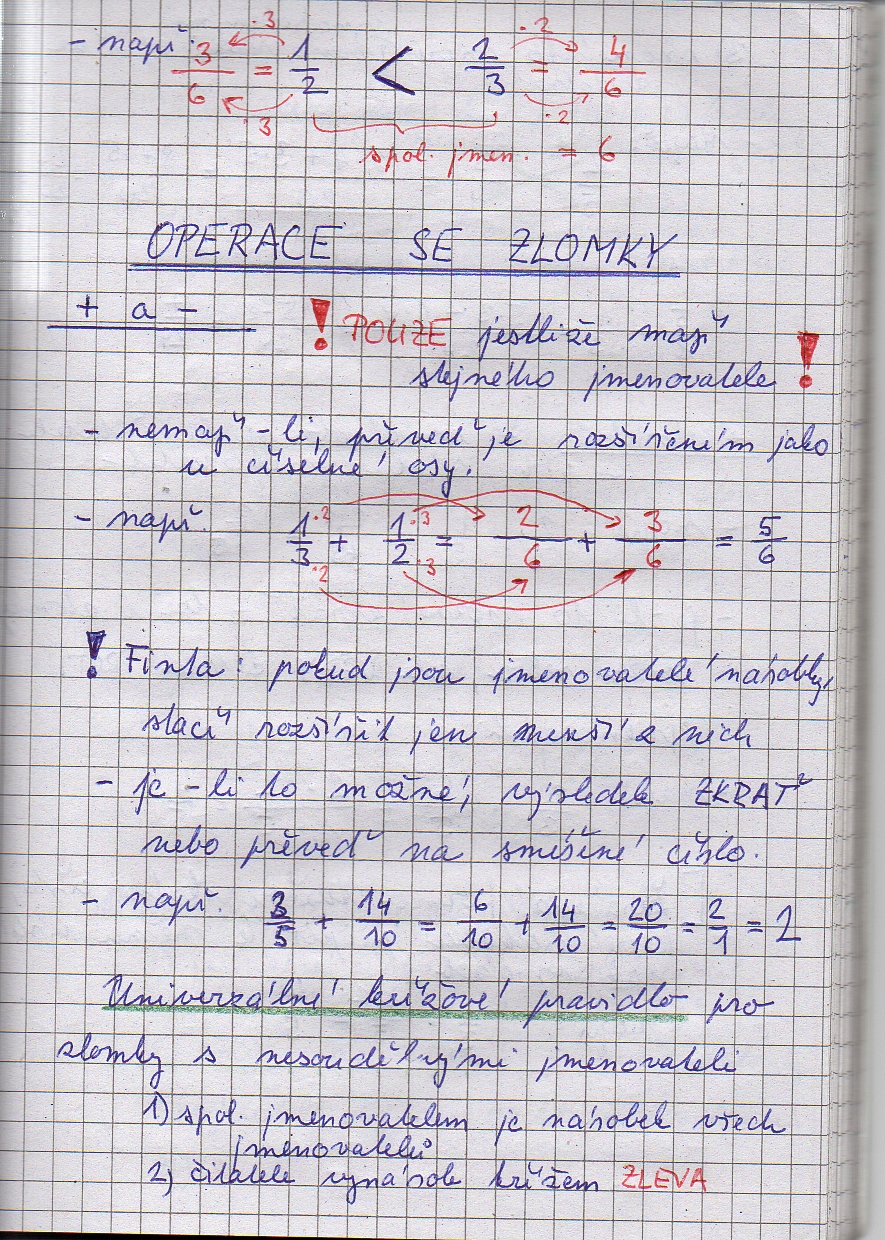 - např. 3/6 = 1/2 < 2/3 = 4/6
·3 ·3 ·2 ·2
spol. jmen. = 6
OPERACE SE ZLOMKY
+ a -
! POUZE jestliže mají
stejného jmenovatele !
- nemají-li, převeď je rozšířením jako
u číselné osy.
- např. 1·2/3·2 + 1·3/2·3 = 2/6 + 3/6 = 5/6
! Finta: pokud jsou jmenovatelé násobky,
stačí rozšířit jen menší z nich
- je-li to možné, výsledek ZKRAŤ
nebo převeď na smíšené číslo.
- např. 3/5 + 14/10 = 6/10 + 14/10 = 20/10 = 2/1 = 2
Univerzální křížové pravidlo pro
zlomky s nesoudělnými jmenovateli
1) spol. jmenovatelem je násobek všech
jmenovatelů
2) čitatele vynásob křížem ZLEVA